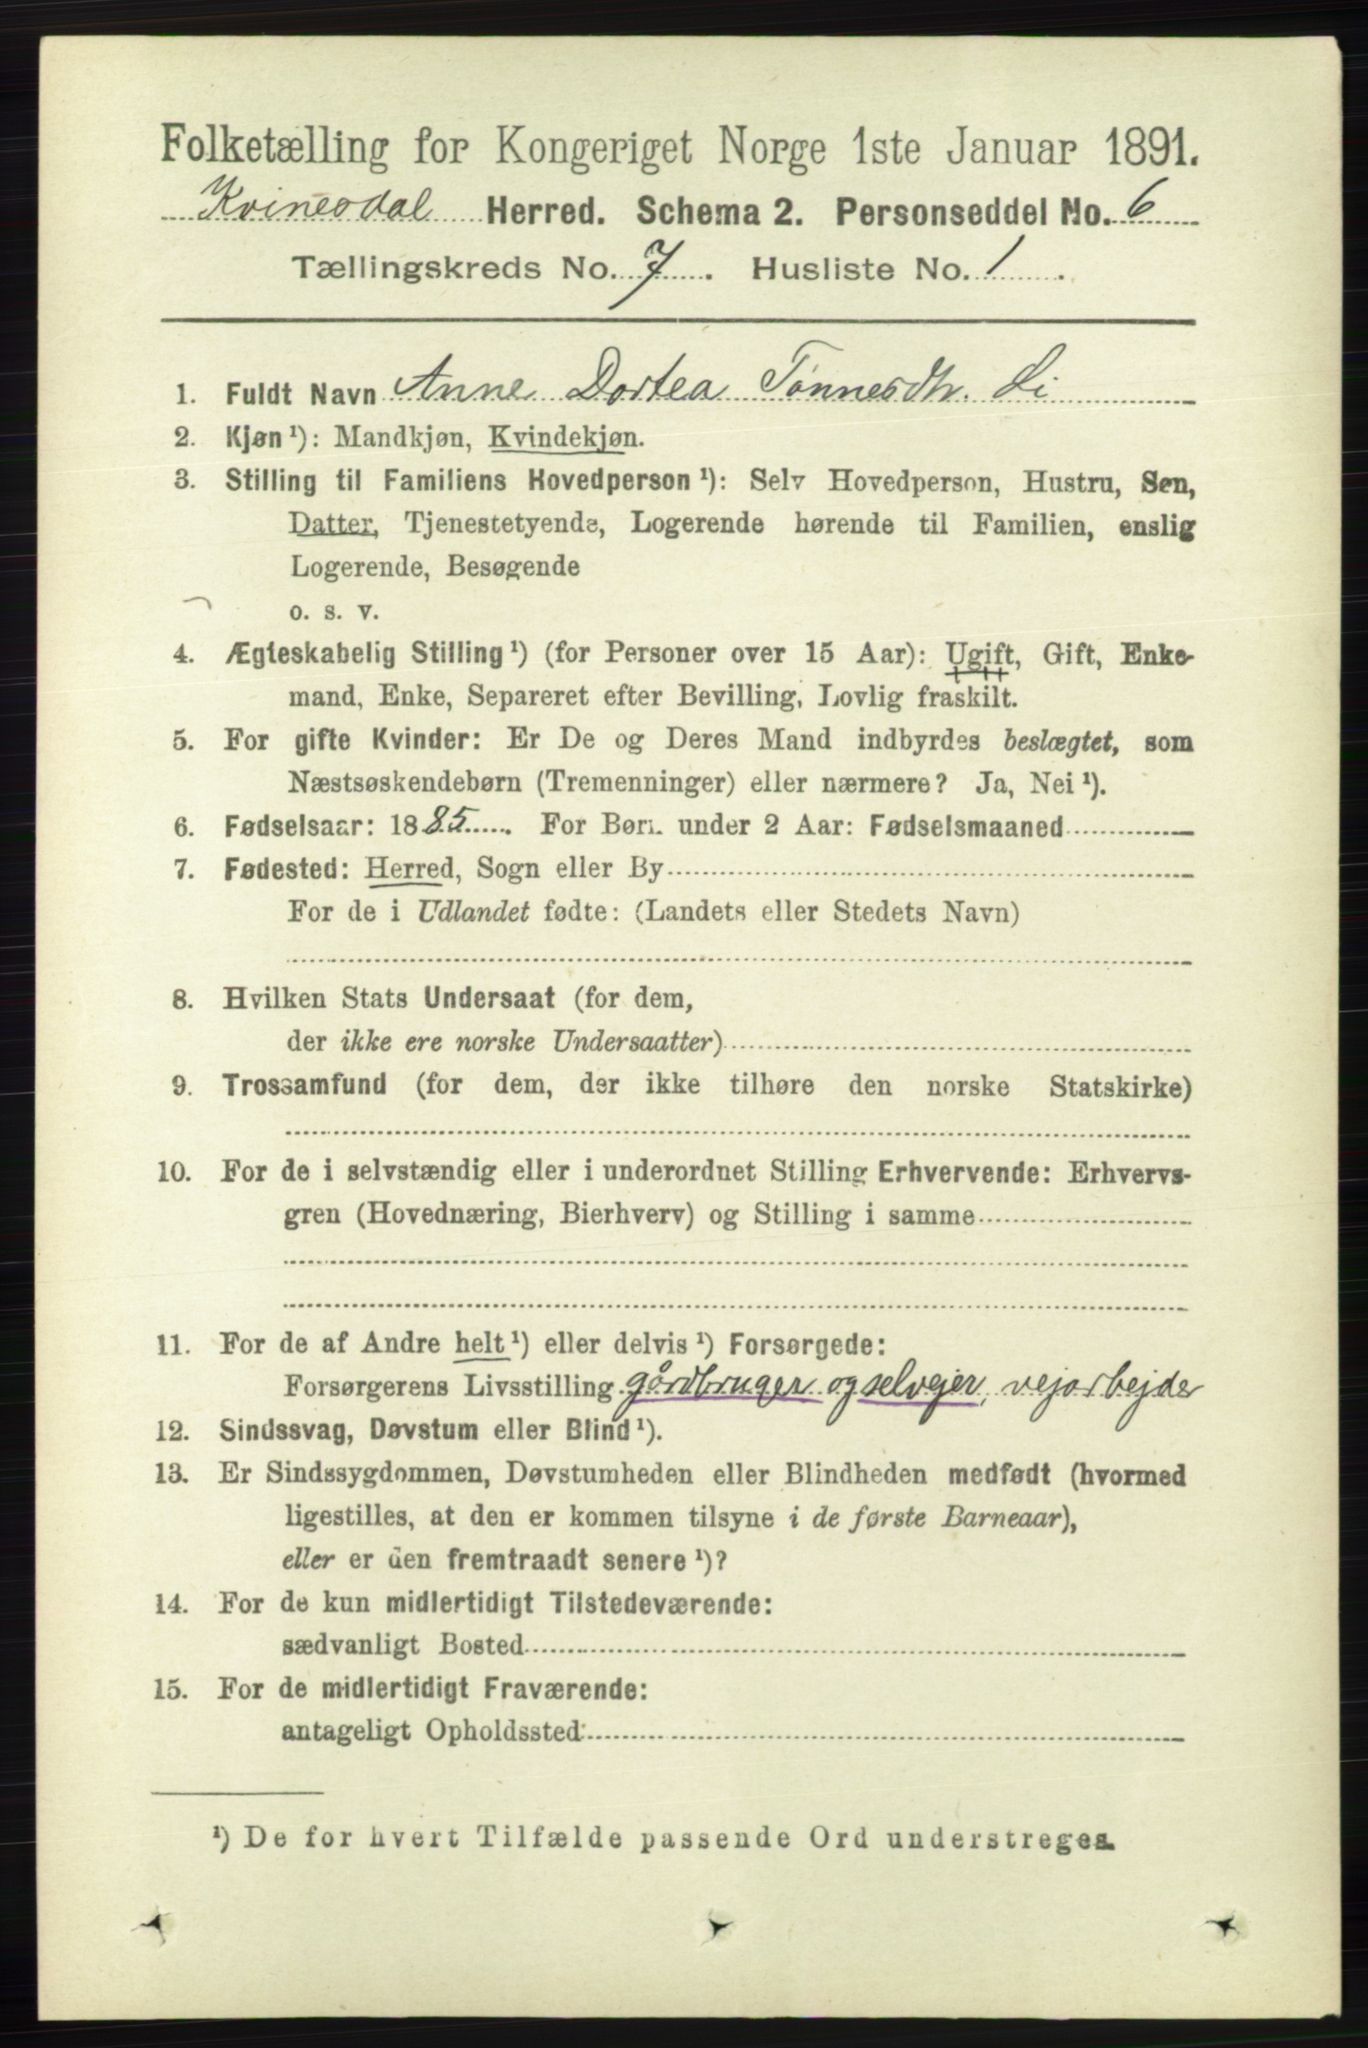 Folketælling for Kongeriget Norge 1ste Januar 1891.
Kvinesdal Herred. Schema 2. Personseddel No. 6
Tællingskreds No. 7. Husliste No. 1.
1. Fuldt Navn Anne Dortea Tønnesdtr. Li
2. Kjøn¹): Mandkjøn, Kvindekjøn.
3. Stilling til Familiens Hovedperson¹): Selv Hovedperson, Hustru, Søn,
Datter, Tjenestetyende, Logerende hørende til Familien, enslig
Logerende, Besøgende
o. s. v.
4. Ægteskabelig Stilling¹) (for Personer over 15 Aar): Ugift, Gift, Enke-
mand, Enke, Separeret efter Bevilling, Lovlig fraskilt.
5. For gifte Kvinder: Er De og Deres Mand indbyrdes beslægtet, som
Næstsøskendebørn (Tremenninger) eller nærmere? Ja, Nei¹).
6. Fødselsaar: 1885. For Børn under 2 Aar: Fødselsmaaned
7. Fødested: Herred, Sogn eller By
For de i Udlandet fødte: (Landets eller Stedets Navn)
8. Hvilken Stats Undersaat (for dem,
der ikke ere norske Undersaatter)
9. Trossamfund (for dem, der ikke tilhøre den norske Statskirke)
10. For de i selvstændig eller i underordnet Stilling Erhvervende: Erhvervs-
gren (Hovednæring, Bierhverv) og Stilling i samme
11. For de af Andre helt¹) eller delvis¹) Forsørgede:
Forsørgerens Livsstilling gårdbruger og selvejer, vejarbejder
12. Sindssvag, Døvstum eller Blind¹).
13. Er Sindssygdommen, Døvstumheden eller Blindheden medfødt (hvormed
ligestilles, at den er kommen tilsyne i de første Barneaar),
eller er den fremtraadt senere¹)?
14. For de kun midlertidigt Tilstedeværende:
sædvanligt Bosted
15. For de midlertidigt Fraværende:
antageligt Opholdssted:
¹) De for hvert Tilfælde passende Ord understreges.